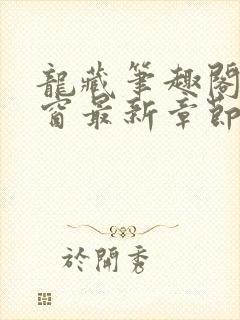 龍藏筆趣閣
窗最新章節
於開秀